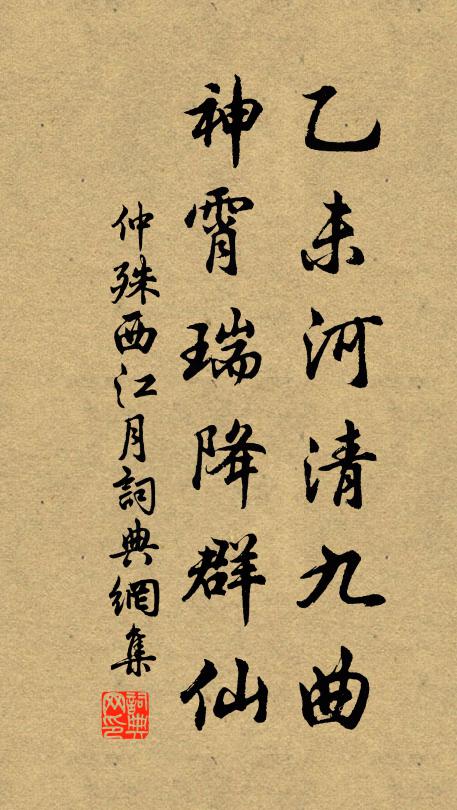 乙未河清九曲
神霄瑞降群仙
仲殊西江月詞典網集
詞典
网印